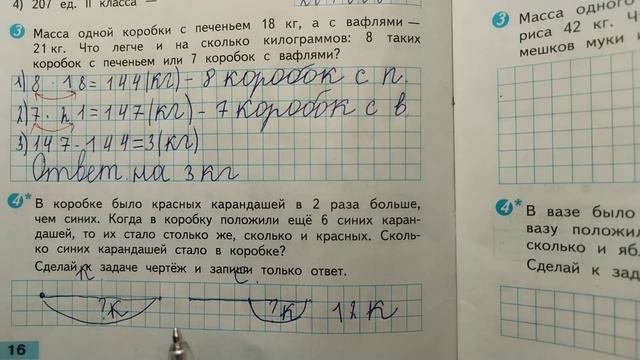 4) 207 ед. II класса —
3 Масса одной коробки с печеньем 18 кг, а с вафлями —
21 кг. Что легче и на сколько килограммов: 8 таких
коробок с печеньем или 7 коробок с вафлями?
1) 8 · 18 = 144 (кг) - 8 коробок с п.
2) 7 · 21 = 147 (кг) - 7 коробок с в.
3) 147 - 144 = 3 (кг)
Ответ на 3 кг
4* В коробке было красных карандашей в 2 раза больше,
чем синих. Когда в коробку положили ещё 6 синих каран-
дашей, то их стало столько же, сколько и красных. Сколь-
ко синих карандашей стало в коробке?
Сделай к задаче чертёж и запиши только ответ.
К С
?к ?к 12 к
16
3 Масса одного
риса 42 кг. Ч
мешков муки и
4* В вазе было
вазу положил
сколько и ябл
Сделай к зад